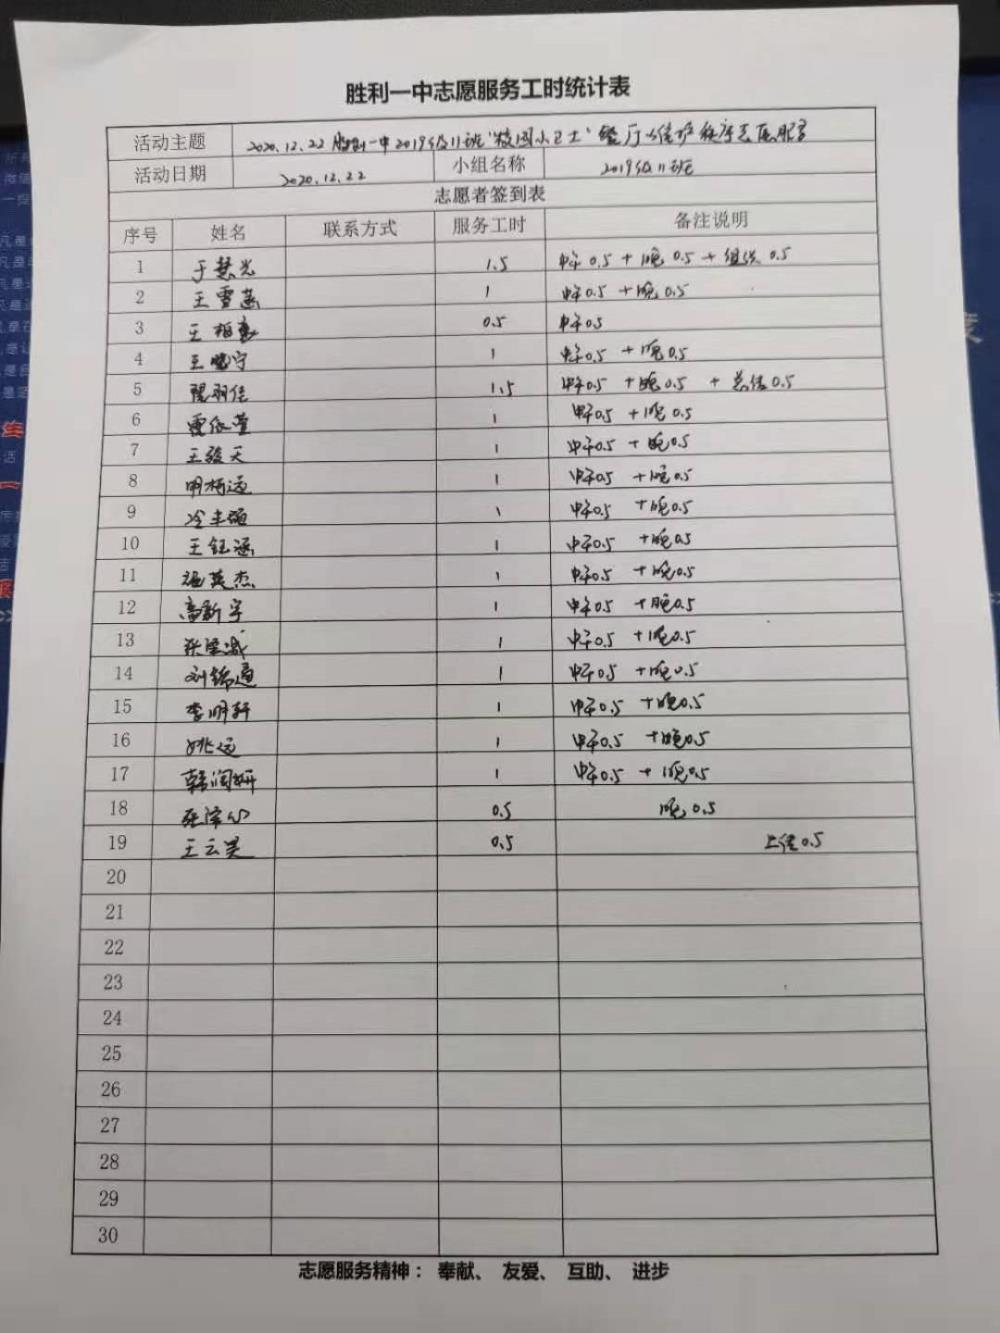 胜利一中志愿服务工时统计表
活动主题 2020.12.22 胜利一中2019级11班"校园小卫士"餐厅维护秩序志愿服务
活动日期 2020.12.22 小组名称 2019级11班
志愿者签到表
序号 姓名 联系方式 服务工时 备注说明
1 于慧光 1.5 中午0.5 + 晚0.5 + 组织0.5
2 王雪 1 中午0.5 + 晚0.5
3 王 0.5 中午0.5
4 王晓宁 1 中午0.5 + 晚0.5
5 羽佳 1.5 中午0.5 + 晚0.5 + 总结0.5
6 依萱 1 中午0.5 + 晚0.5
7 王骏天 1 中午0.5 + 晚0.5
8 1 中午0.5 + 晚0.5
9 冷丰硕 1 中午0.5 + 晚0.5
10 王钰涵 1 中午0.5 + 晚0.5
11 英杰 1 中午0.5 + 晚0.5
12 高新宇 1 中午0.5 + 晚0.5
13 张 1 中午0.5 + 晚0.5
14 刘锦 1 中午0.5 + 晚0.5
15 李明轩 1 中午0.5 + 晚0.5
16 姚远 1 中午0.5 + 晚0.5
17 韩润妍 1 中午0.5 + 晚0.5
18 0.5 晚0.5
19 王云昊 0.5 上传0.5
20
21
22
23
24
25
26
27
28
29
30
志愿服务精神： 奉献、 友爱、 互助、 进步